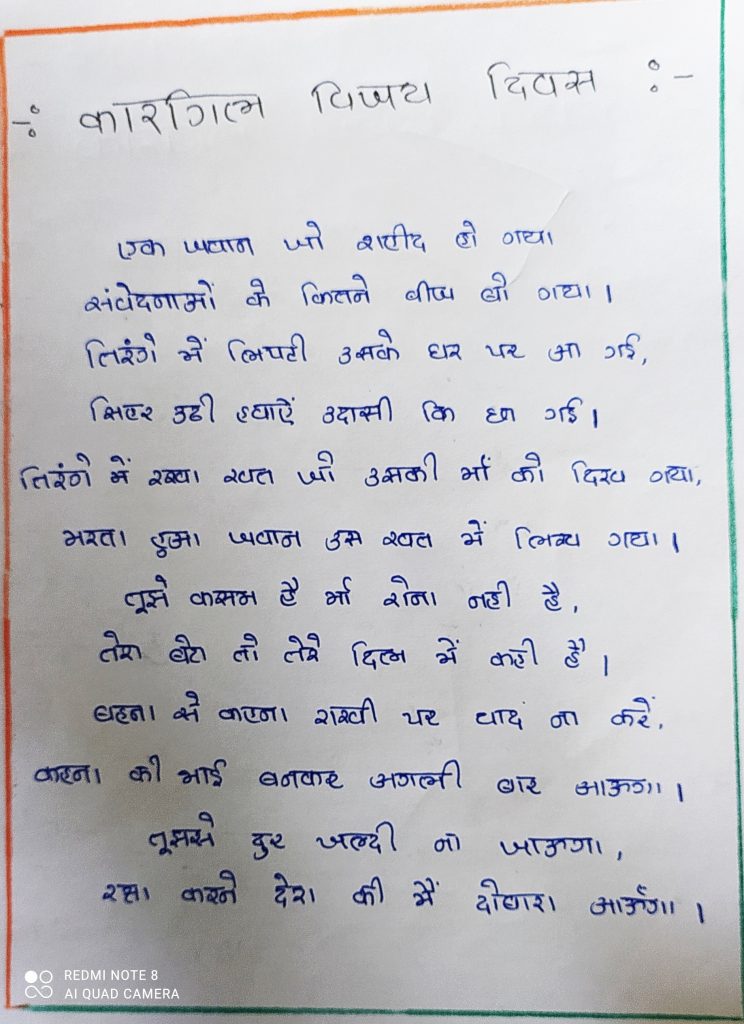 -: कारगिल विजय दिवस :-
एक जवान जो शहीद हो गया
संवेदनाओं के कितने बीज बो गया।
तिरंगे में लिपटी उसके घर पर आ गई,
सिहर उठी हवाऐं उदासी कि छा गई।
तिरंगे में रखा खत जो उसकी माँ को दिख गया,
मरता हुआ जवान उस खत में लिख गया।
तूझे कसम है माँ रोना नही है,
तेरा बेटा तो तेरे दिल में कही है।
बहना से कहना राखी पर याद ना करें,
कहना की भाई बनकर अगली बार आऊगा।
तूझसे दुर जल्दी ना जाऊगा,
रक्षा करने देश की मैं दोबारा आऊँगा।
REDMI NOTE 8
AI QUAD CAMERA